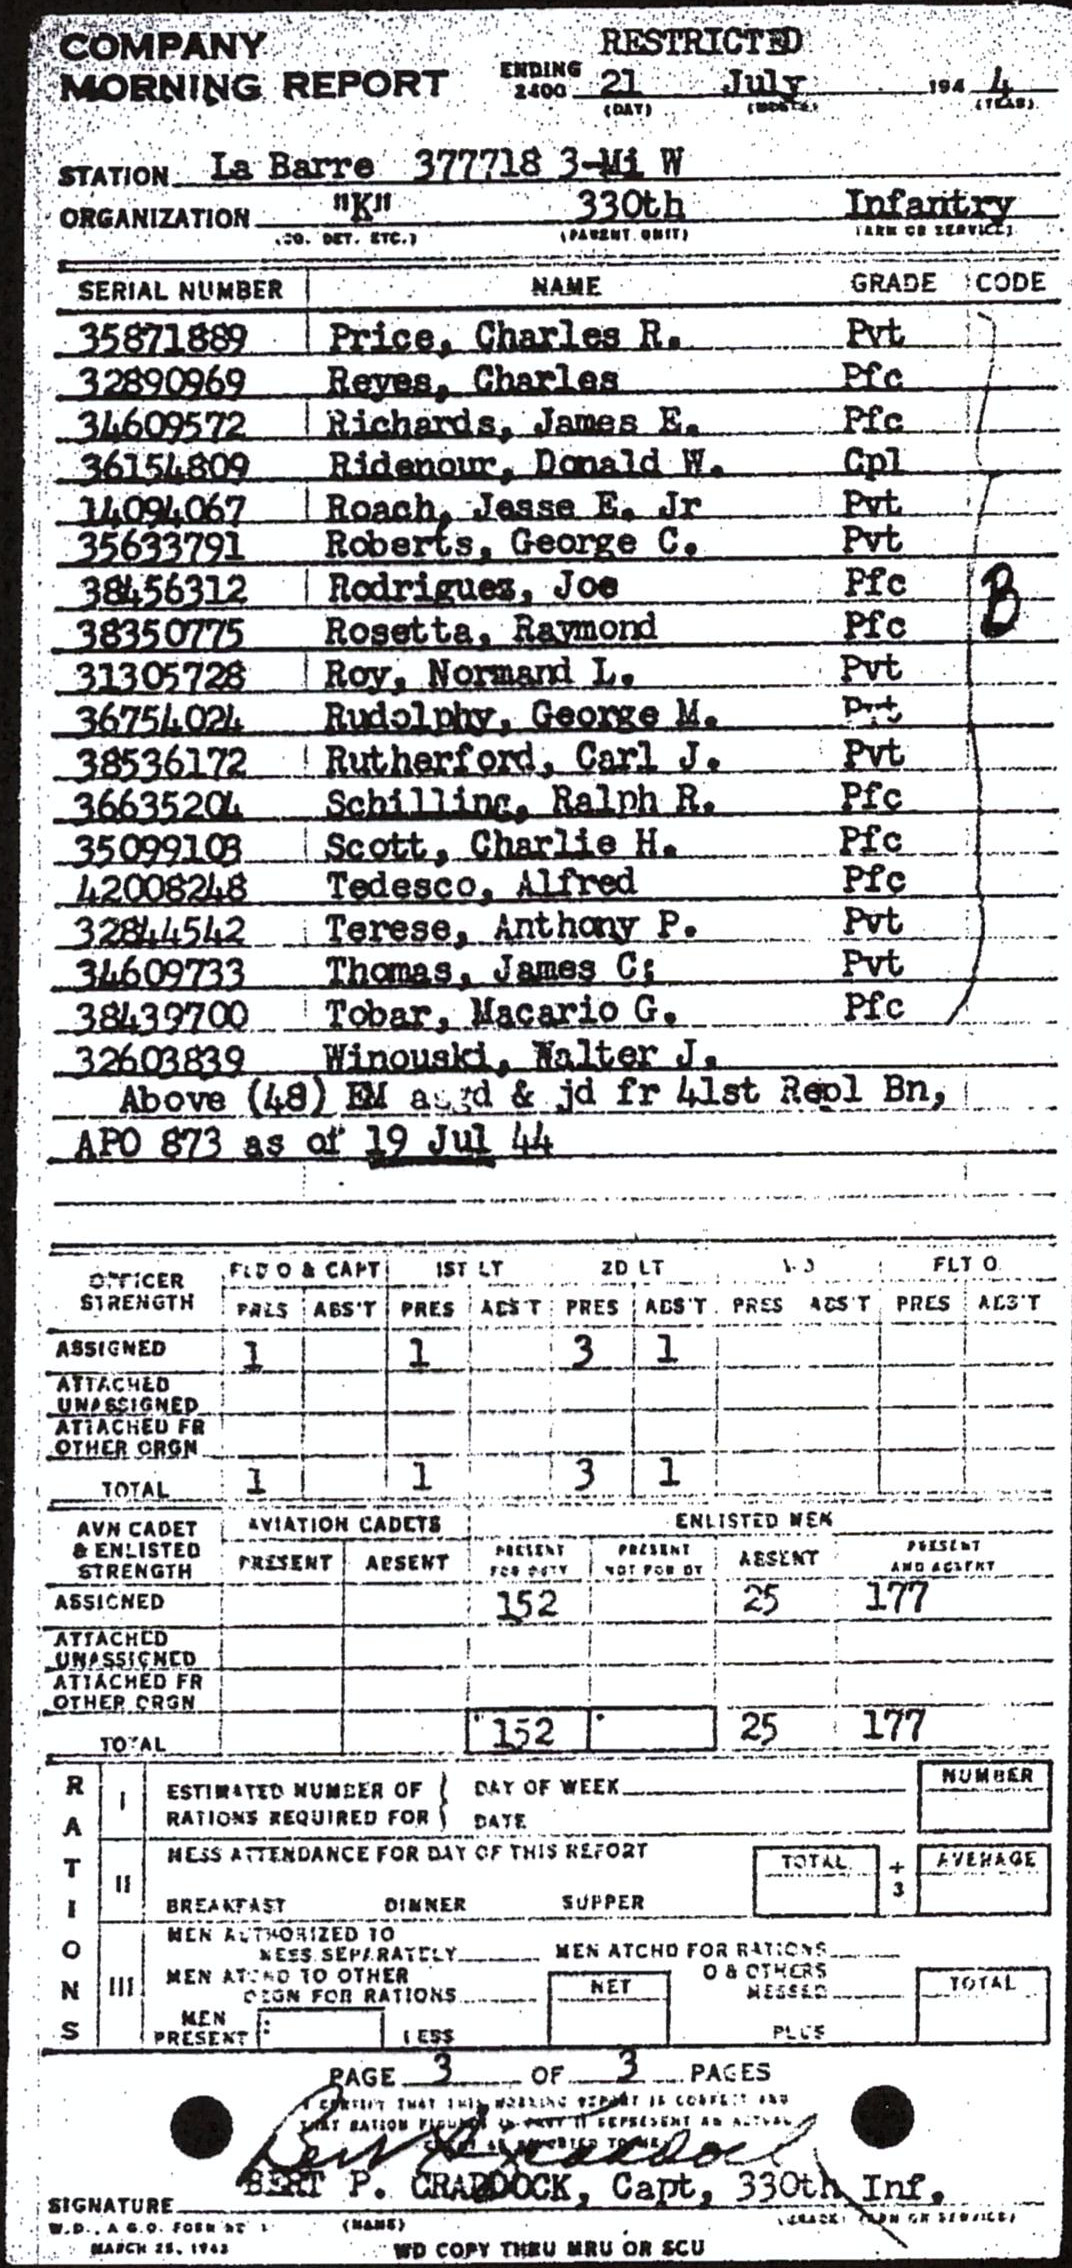 COMPANY RESTRICTED
MORNING REPORT ENDING 2400 21 July 194 4
(DAY) (YEAR)
STATION La Barre 377718 3-Mi W
ORGANIZATION "K" 330th Infantry
(CO. DET. ETC.) (PARENT UNIT) (ARM OR SERVICE)
SERIAL NUMBER NAME GRADE CODE
35871889 Price, Charles R. Pvt
32890969 Reyes, Charles Pfc
34609572 Richards, James E. Pfc
36154809 Ridenour, Donald W. Cpl
14094067 Roach, Jesse E. Jr Pvt
35633791 Roberts, George C. Pvt
38456312 Rodriguez, Joe Pfc B
38350775 Rosetta, Raymond Pfc
31305728 Roy, Normand L. Pvt
36754024 Rudolphy, George M. Pvt
38536172 Rutherford, Carl J. Pvt
36635204 Schilling, Ralph R. Pfc
35099103 Scott, Charlie H. Pfc
42008248 Tedesco, Alfred Pfc
32844542 Terese, Anthony P. Pvt
34609733 Thomas, James C; Pvt
38439700 Tobar, Macario G. Pfc
32603839 Winouski, Walter J.
Above (48) EM asgd & jd fr 41st Repl Bn,
APO 873 as of 19 Jul 44
OFFICER STRENGTH FLD O & CAPT 1ST LT 2D LT FLT O
PRES ABS'T PRES ABS'T PRES ABS'T PRES ABS'T PRES ABS'T
ASSIGNED 1 1 3 1
ATTACHED
UNASSIGNED
ATTACHED FR
OTHER ORGN
TOTAL 1 1 3 1
AVN CADET & ENLISTED STRENGTH AVIATION CADETS ENLISTED MEN
PRESENT ABSENT PRESENT FOR DUTY PRESENT NOT FOR DY ABSENT PRESENT AND ABSENT
ASSIGNED 152 25 177
ATTACHED
UNASSIGNED
ATTACHED FR
OTHER ORGN
TOTAL 152 25 177
RATIONS
I ESTIMATED NUMBER OF RATIONS REQUIRED FOR { DAY OF WEEK NUMBER
DATE
II MESS ATTENDANCE FOR DAY OF THIS REPORT TOTAL ÷ 3 AVERAGE
BREAKFAST DINNER SUPPER
III MEN AUTHORIZED TO
MESS SEPARATELY MEN ATCHD FOR RATIONS
MEN ATCHD TO OTHER
ORGN FOR RATIONS NET O & OTHERS MESSED TOTAL
MEN PRESENT LESS PLUS
PAGE 3 OF 3 PAGES
I CERTIFY THAT THIS MORNING REPORT IS CORRECT AND
THAT RATION FIGURES IN PART II REPRESENT AN ACTUAL
AS REPORTED TO ME
BERT P. CRADDOCK, Capt, 330th Inf.
SIGNATURE
(NAME) (GRADE) (ARM OR SERVICE)
W.D., A.G.O. FORM NO. 1
MARCH 25, 1943
WD COPY THRU MRU OR SCU